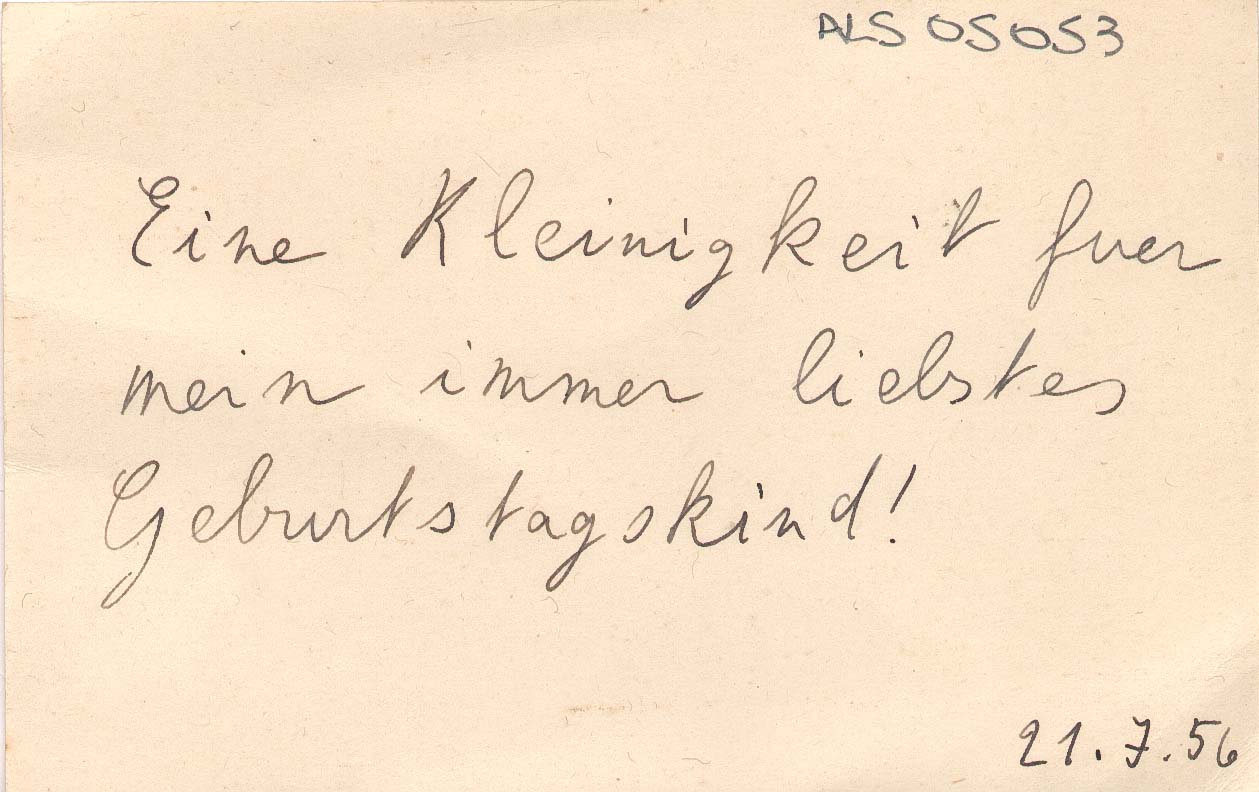 ALS 05053
Eine Kleinigkeit fuer
mein immer liebstes
Geburtstagskind!
21.7.56